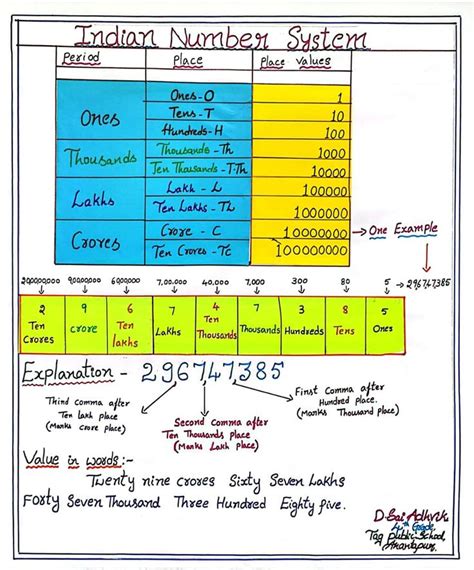 Indian Number System
Period Place Place Values
Ones
Ones-O 1
Tens-T 10
Hundreds-H 100
Thousands
Thousands-Th 1000
Ten Thousands-T.Th 10000
Lakhs
Lakh - L 100000
Ten Lakhs- TL 1000000
Crores
Crore - C 10000000 → One Example
Ten Crores- TC 100000000
200000000 90000000 6000000 7,00,000 40,000 7,000 300 80 5 → 296747385
2 9 6 7 4 7 3 8 5
Ten Crores crore Ten lakhs Lakhs Ten Thousands Thousands Hundreds Tens Ones
Explanation - 296747385
Third comma after
Ten lakh place
(Marks crore place)
Second Comma after
Ten Thousands place
(Marks Lakh place)
First Comma after
Hundred place.
(Marks Thousand place)
Value in words:-
Twenty nine crores Sixty Seven Lakhs
Forty Seven Thousand Three Hundred Eighty five.
D.Sai Adhvik
4th Grade
Public School,